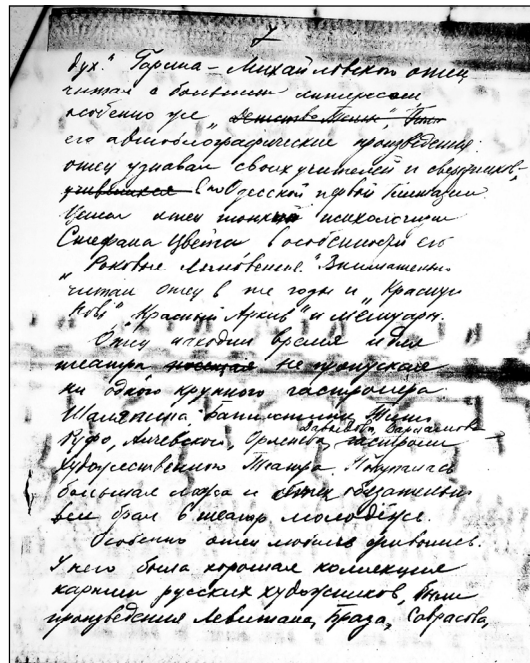 7
дух." Гарина-Михайловского отец
читал с большим интересом
особенно же "Детство Темы",
его автобиографические произведения:
отец узнавал своих учителей и сверстников-
учившихся Одесской первой Гимназии.
Ценил отец тонкий психологизм
Стефана Цвейга в особенности его
"Роковые мгновенья." Внимательно
читал отец в те годы и "Красную
Новь", "Красный Архив" и мемуары.
Отец находил время и для
театра посещая не пропускал
ни одного крупного гастролера
Шаляпина, Баттистини, Титто
Давыдова, Варламова
Руфо, Орленева, гастроли
Художественного Театра. Покупалась
большая ложа и отец обязательно
брал в театр молодежь.
Особенно отец любил живопись.
У него была хорошая коллекция
картин русских художников, были
произведения Левитана, Браза, Саврасова,